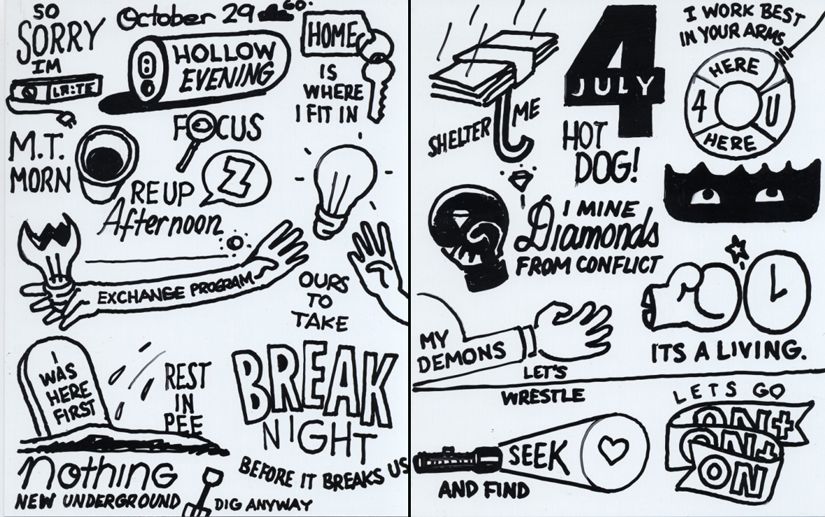 SO
SORRY
IM
LRITE
October 29
60.
HOLLOW
EVENING
HOME
IS
WHERE
I FIT IN
M.T.
MORN
FOCUS
RE UP
Z
Afternoon
EXCHANGE PROGRAM
OURS
TO
TAKE
I
WAS
HERE
FIRST
REST
IN
PEE
BREAK
NIGHT
BEFORE IT BREAKS US
Nothing
NEW UNDERGROUND
DIG ANYWAY
SHELTER ME
4
JULY
HOT
DOG!
I WORK BEST
IN YOUR ARMS
HERE
4 U
HERE
I MINE
Diamonds
FROM CONFLICT
MY
DEMONS
LET'S
WRESTLE
ITS A LIVING.
SEEK
AND FIND
LETS GO
ON+
ON+
ON